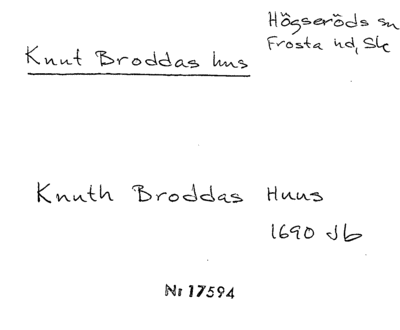 Högseröds sn
Frosta hd, Sk
Knut Broddas hus
Knuth Broddas Huus
1690 Jb
Nr 17594